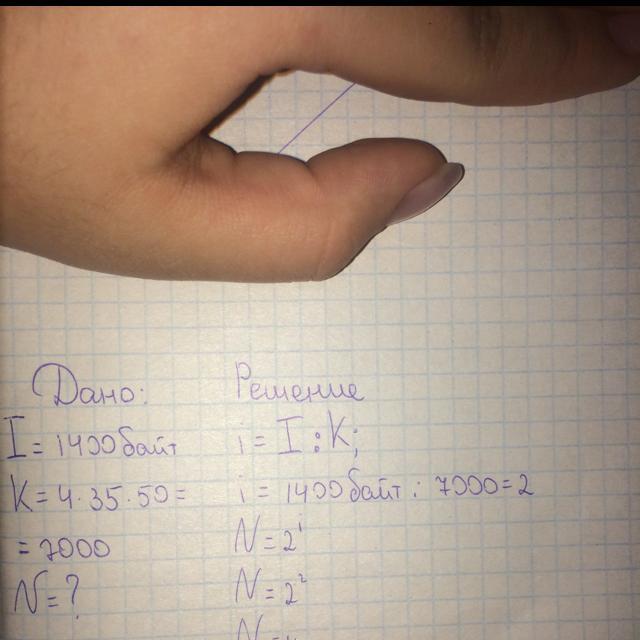 Дано:
I = 1400байт
K = 4·35·50 =
= 7000
N = ?
Решение
i = I : K;
i = 1400байт : 7000 = 2
N = 2ⁱ
N = 2²